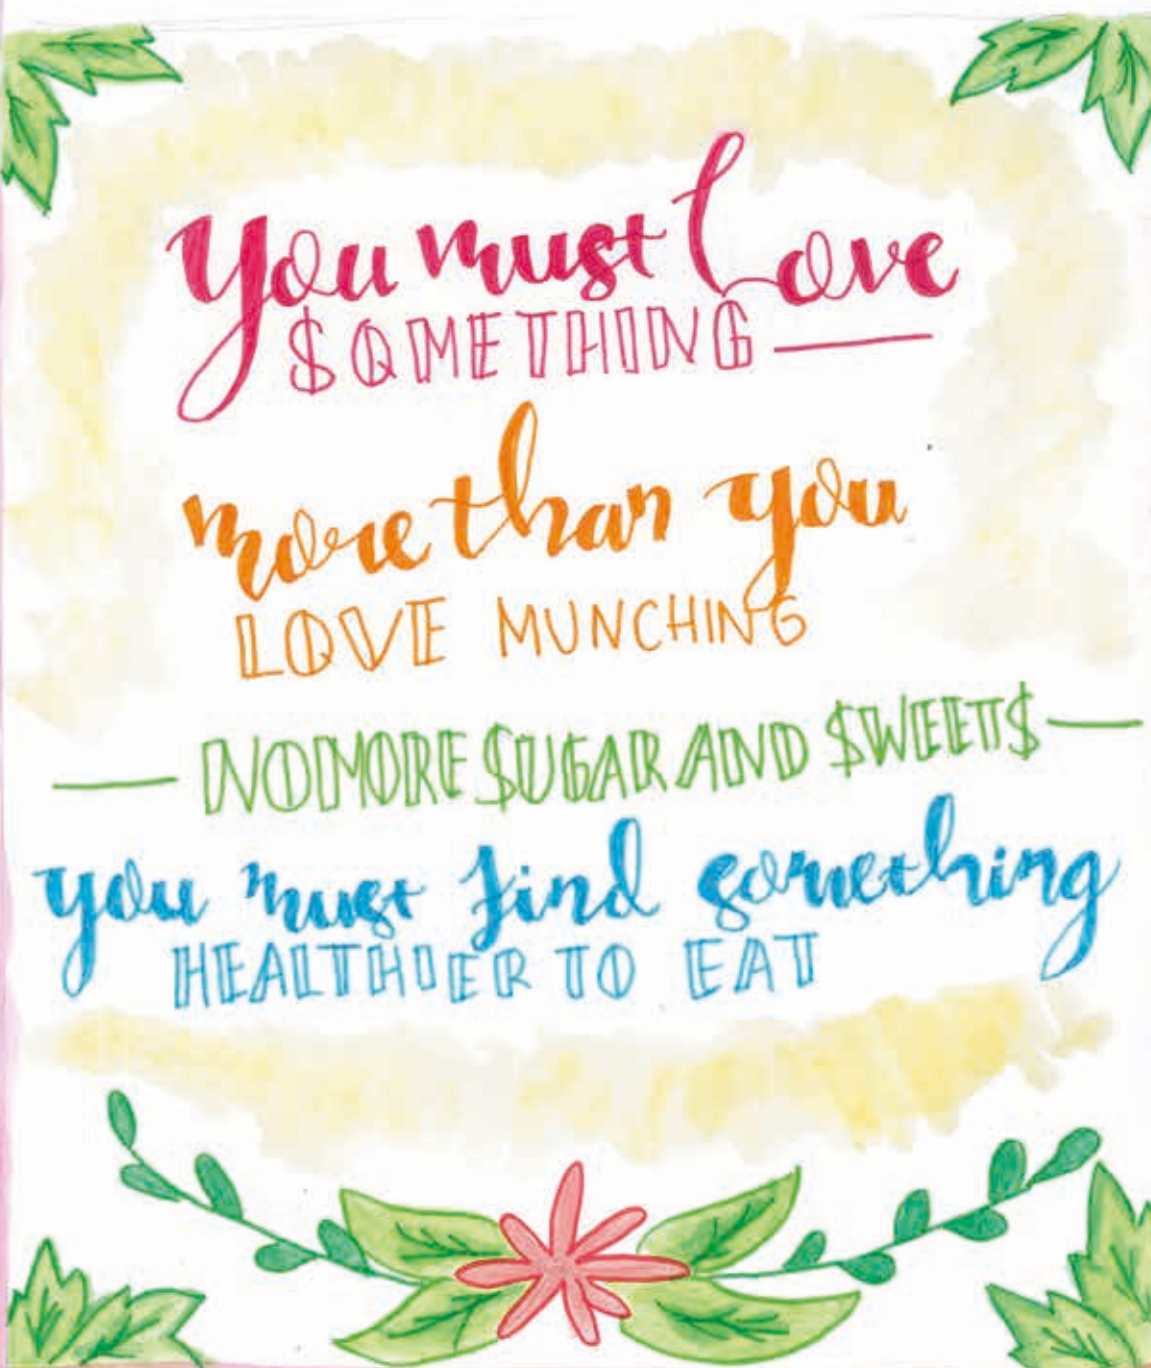 You must Love
SOMETHING
more than you
LOVE MUNCHING
NO MORE SUGAR AND SWEETS
you must find something
HEALTHIER TO EAT